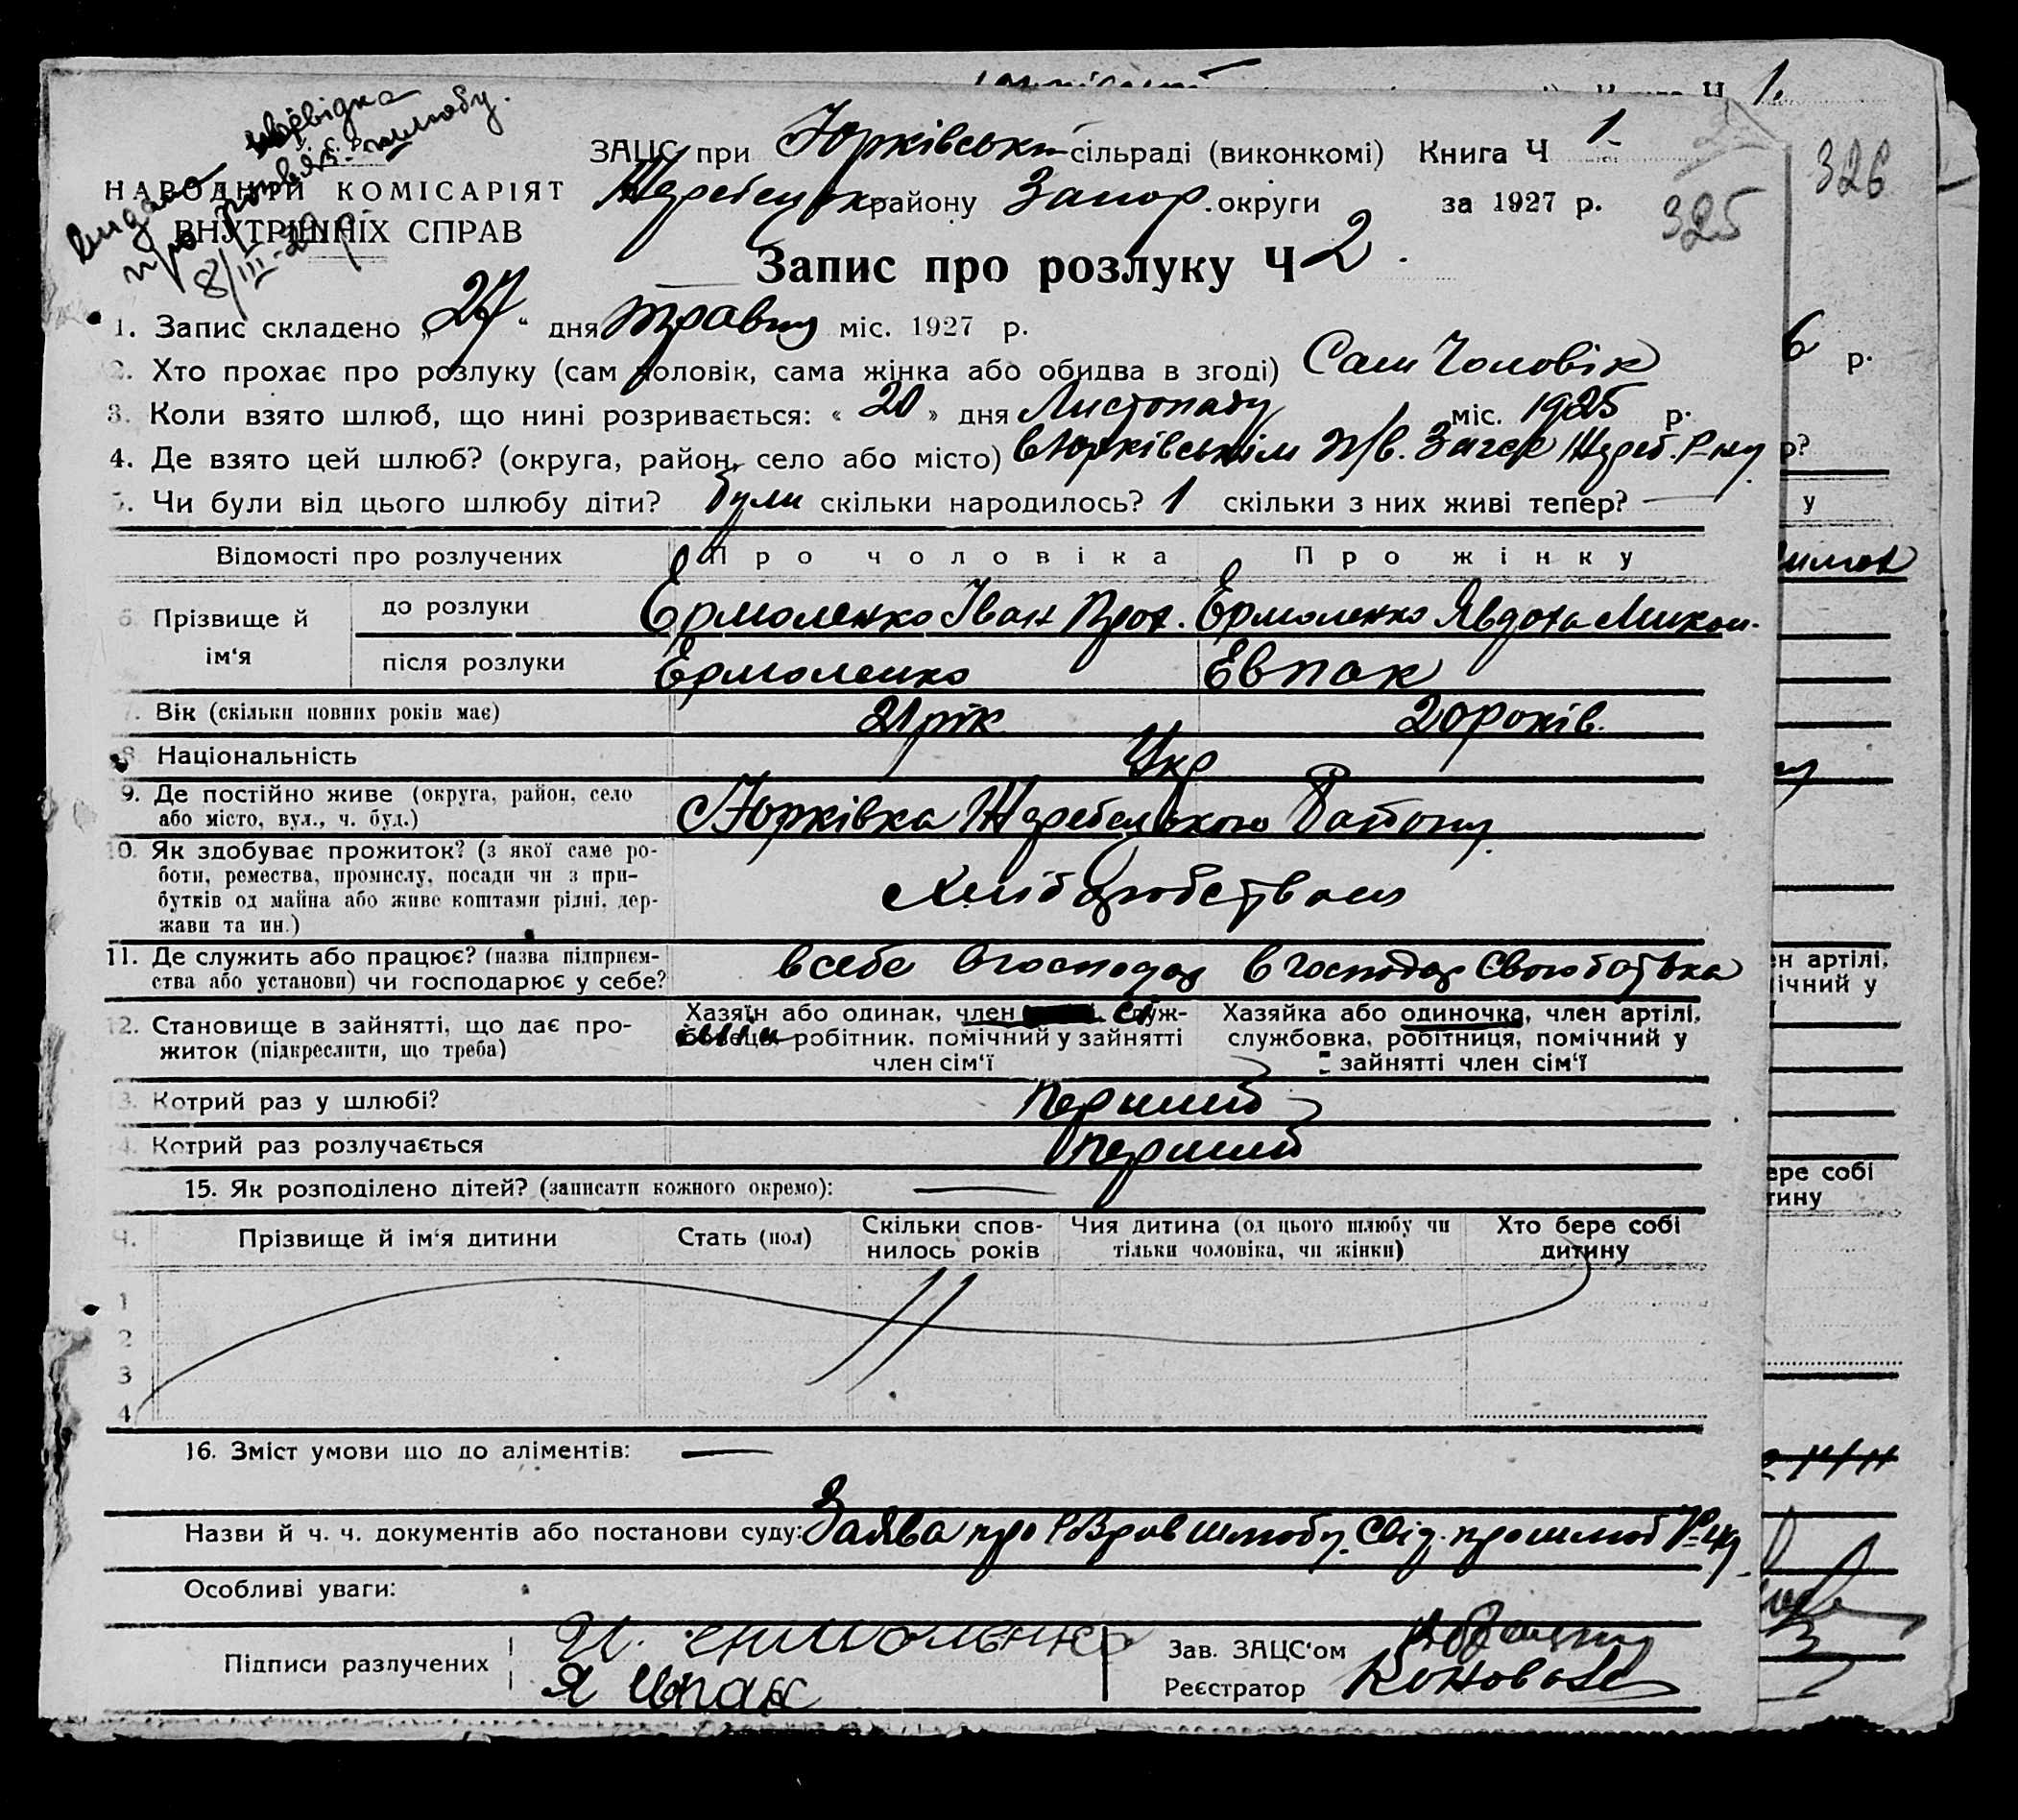 Книга Ч 1.
326
Видано довідка
про розрив шлюбу.
8/III-29 р
НАРОДНИЙ КОМІСАРІЯТ
ВНУТРІШНІХ СПРАВ
ЗАЦС при Юрківській сільраді (виконкомі) Книга Ч 1.
Жеребецьк району Запор. округи за 1927 р.
325
Запис про розлуку Ч 2.
1. Запис складено „27“ дня травня міс. 1927 р.
2. Хто прохає про розлуку (сам чоловік, сама жінка або обидва в згоді) Сам Чоловік
3. Коли взято шлюб, що нині розривається: « 20 » дня Листопаду міс. 1925 р.
4. Де взято цей шлюб? (округа, район, село або місто) в Юрківськім П/в. Загсі Жереб. Р-ну
5. Чи були від цього шлюбу діти? були скільки народилось? 1 скільки з них живі тепер? —
Відомості про розлучених Про чоловіка Про жінку
6. Прізвище й ім‘я до розлуки Ермоленко Іван Прок. Ермоленко Явдоха Микол.
після розлуки Ермоленко Евпак
7. Вік (скільки повних років має) 21 рік 20 років.
8. Національність Укр
9. Де постійно живе (округа, район, село
або місто, вул., ч. буд.) Юрківка Жеребецького Району
10. Як здобуває прожиток? (з якої саме ро-
боти, ремества, промислу, посади чи з при-
бутків од майна або живе коштами рідні, дер-
жави та ин.) Хлібороб­ством
11. Де служить або працює? (назва підприєм-
ства або установи) чи господарює у себе? в себе в господар в господар свого батька
12. Становище в зайнятті, що дає про-
житок (підкреслити, що треба)
Хазяїн або одинак, член служ-
бовець, робітник, помічний у зайнятті
член сім‘ї
Хазяйка або одиночка, член артілі,
службовка, робітниця, помічний у
зайнятті член сім‘ї
13. Котрий раз у шлюбі? перший
14. Котрий раз розлучається перший
15. Як розподілено дітей? (записати кожного окремо): —
Ч. Прізвище й ім‘я дитини Стать (пол) Скільки спов-
нилось років Чия дитина (од цього шлюбу чи
тільки чоловіка, чи жінки) Хто бере собі
дитину
1
2
3
4
16. Зміст умови що до аліментів: —
Назви й ч. ч. документів або постанови суду: Заява про розрив шлюбу. Свід. про шлюб
Особливі уваги:
Підписи разлучених И. Ермоленко
Я Евпак
Зав. ЗАЦС‘ом
Реєстратор Коновал
6 р.
р?
у
н артілі,
ічний у
ере собі
тину